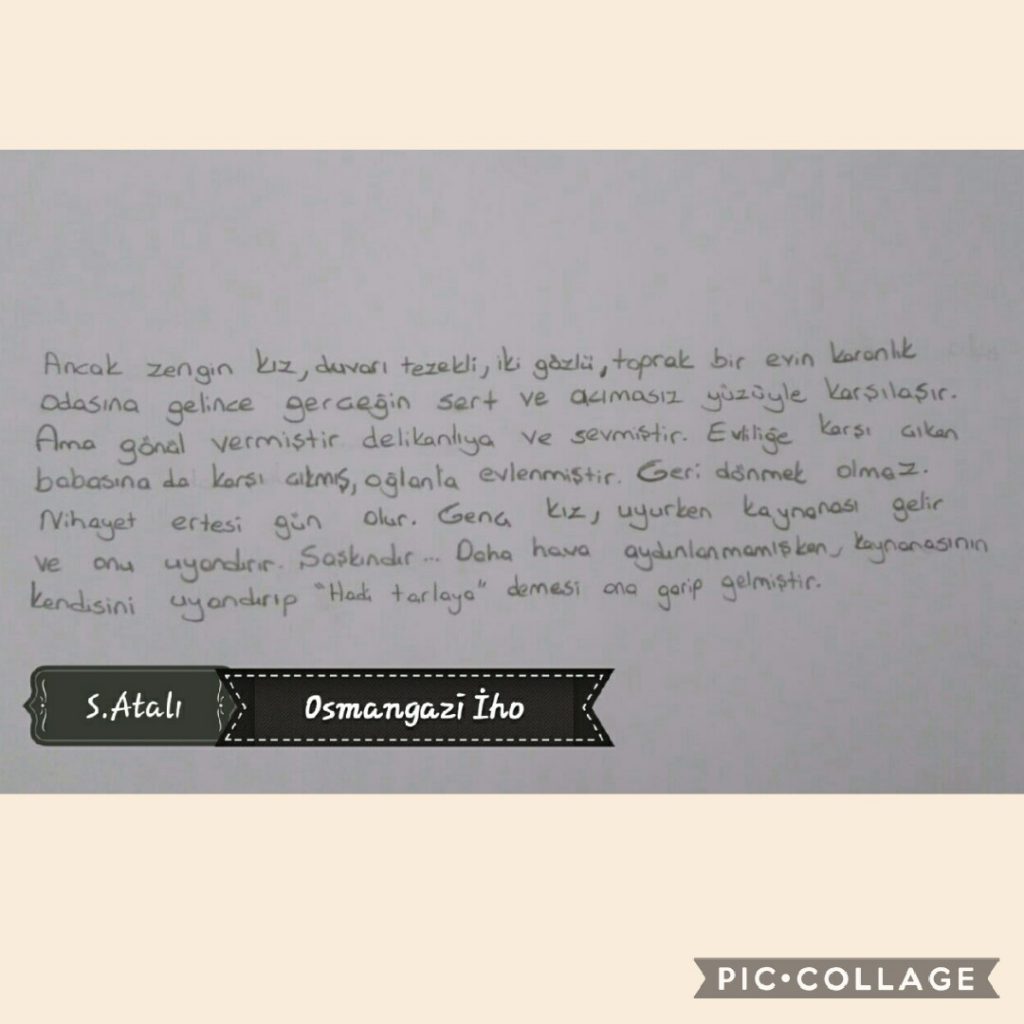 Ancak zengin kız, duvarı tezekli, iki gözlü, toprak bir evin karanlık
odasına gelince gerçeğin sert ve acımasız yüzüyle karşılaşır.
Ama gönül vermiştir delikanlıya ve sevmiştir. Evliliğe karşı çıkan
babasına da karşı çıkmış, oğlanla evlenmiştir. Geri dönmek olmaz.
Nihayet ertesi gün olur. Genç kız, uyurken kaynanası gelir
ve onu uyandırır. Şaşkındır... Daha hava aydınlanmamışken, kaynanasının
kendisini uyandırıp "Hadi tarlaya" demesi ona garip gelmiştir.
S.Atalı
Osmangazi İho
PIC•COLLAGE